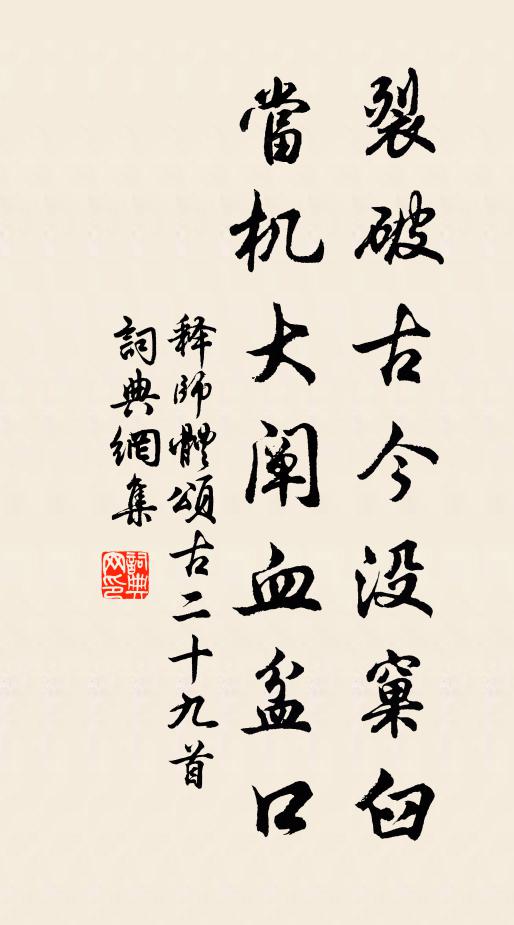 裂破古今没窠臼
當机大阐血盆口
释師體頌古二十九首
詞典網集
詞典网印